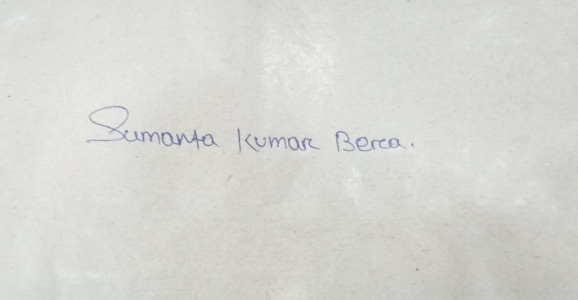 Sumanta Kumar Bera.